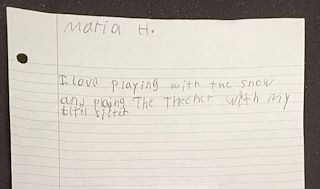 Maria H.
I love playing with the snow
and plaing The Thecher with my
littl sister